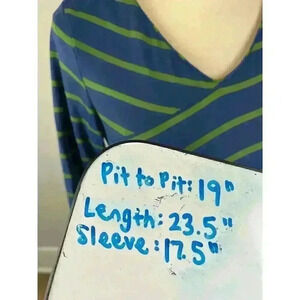 Pit to Pit: 19"
Length: 23.5"
Sleeve: 17.5"